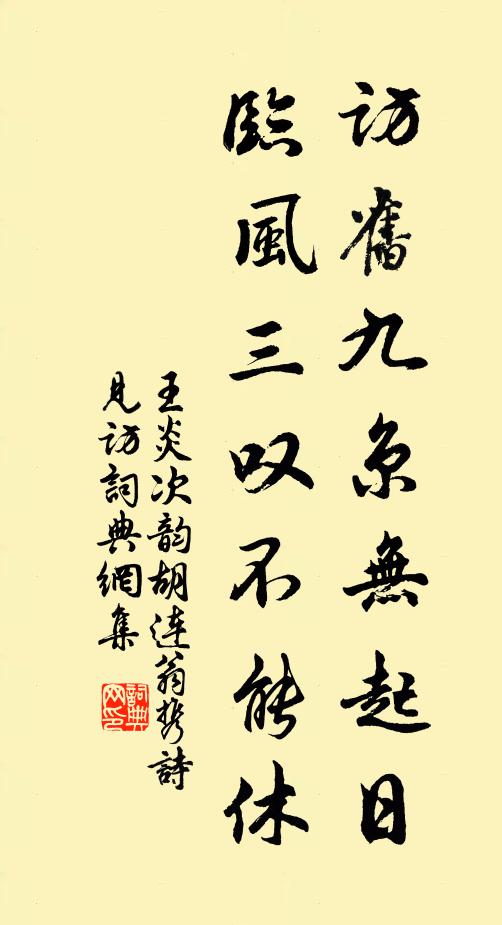 訪舊九京無起日
臨風三叹不能休
王炎次韵胡連翁携詩
見訪詞典網集
詞典网印